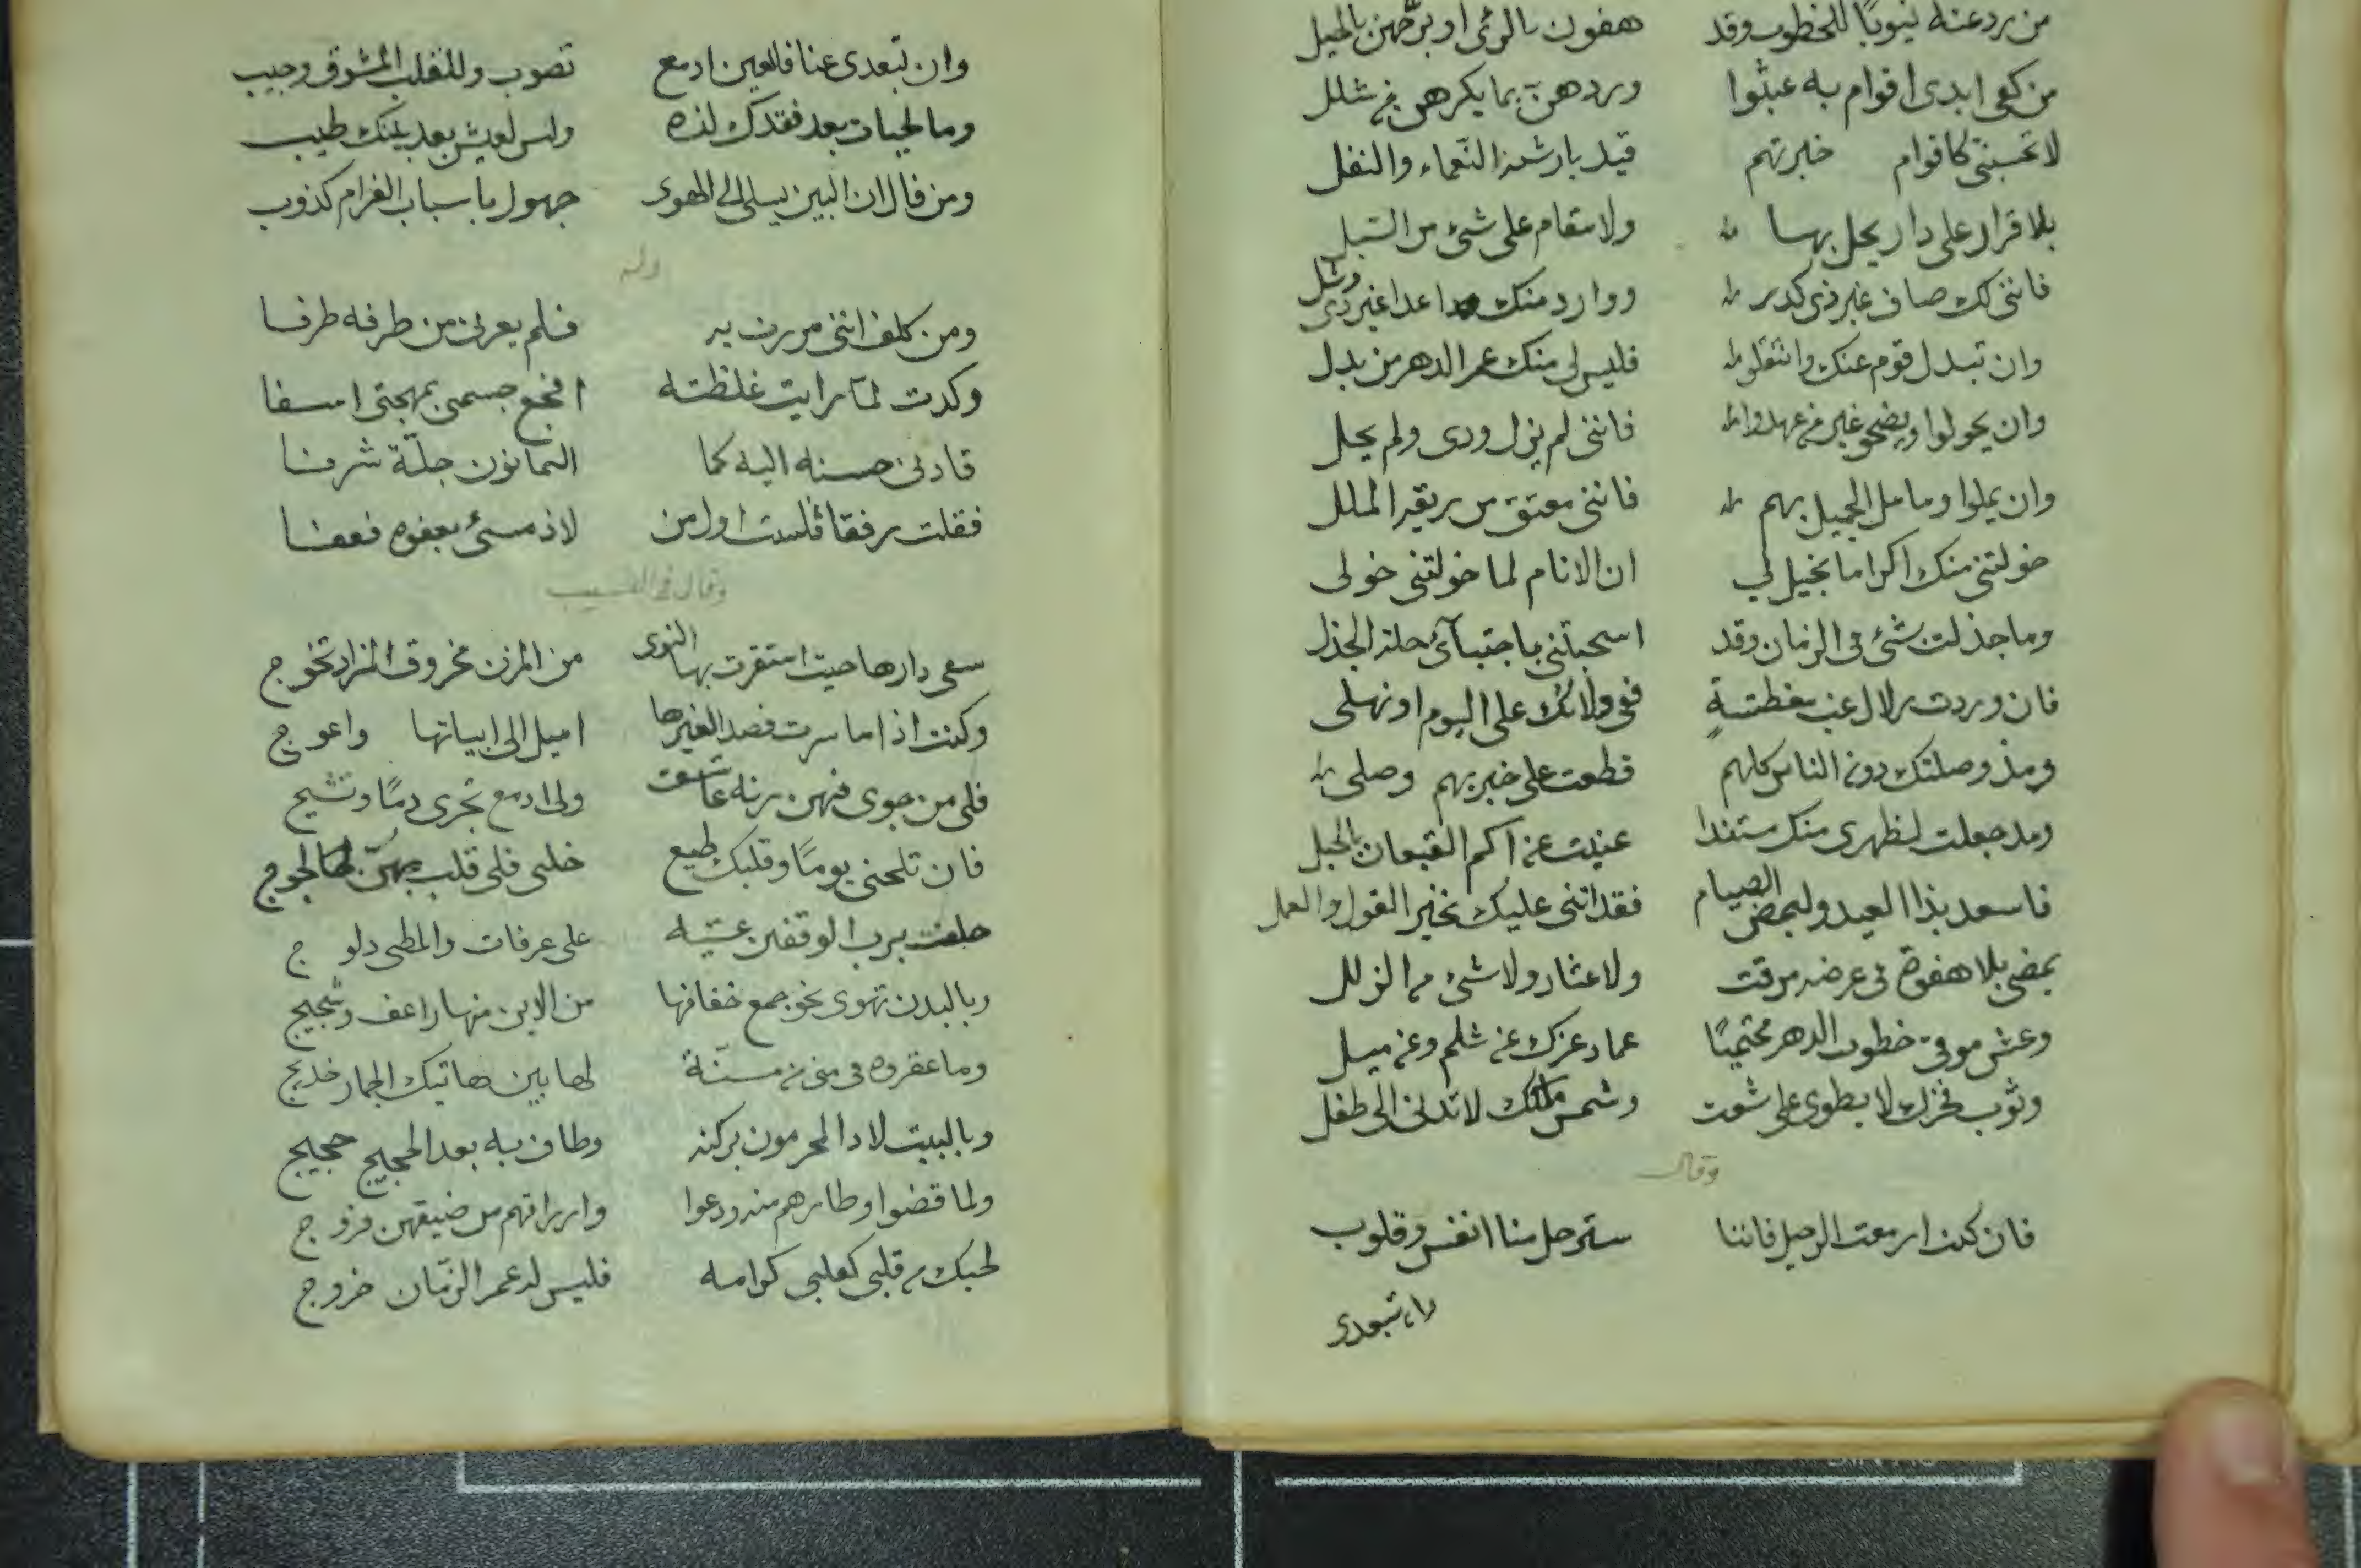 من رد عنه نيوبا للخطوب وقد هفون بالرئ او برحهن بالحيل
من كف ايدى اقوام به عبثوا وردهن بما يكرهن فى شلل
لا تحسبنى كاقوام خبرتهم قيد بارشـ النعماء والنفل
بلا قرار على دار يحل بها ولا مقام على شئ من السبل
فاننى لك صاف غير ذى كدر ووارد منك عدا غير ذى وشل
وان تبدل قوم عنك وانتقلوا فليس لى منك عمر الدهر من بدل
وان يحولوا ويضحو غير فى عهدوا فاننى لم يزل ودى ولم يحل
وان يملوا وما مل الجميل بهم فاننى معتق من ربقة الملل
خولتنى منك اكراما يخيل لي ان الانام لما خولتنى خولى
وما جذلت بشئ فى الزمان وقد اسحبتنى باجتبآئى حلة الجذل
فان وردت زلال عب مغطشة ففى ولائك على اليوم او نهلى
ومذ وصلتك دون الناس كلهم قطعت على خبر بهم وصلى
ومذ جعلت لظهرى منك مستندا غنيت عن اكم القيعان بالجبل
فاسعد بذا العيد وليمض الصيام فقد اثنى عليك بخير القول والعمل
يمضى بلا هفوة فى عرضه مرقت ولا عثار ولا شئ من الزلل
وعش موقى خطوب الدهر محتميا عماد عزك عن ثلم وعن ميل
وثوب فخرك لا يطوى على شعث وشمس ملكك لا تدنى الى طفل
وقال
فان كنت ازمعت الرحيل فاننا سترحل منا انفس وقلوب
وان تبعدى
وان تبعدى عنا فللعين ادمع تصوب وللقلب المشوق وجيب
وما لحيات بعد فقدك لذه وليس لعيش بعد بينك طيب
ومن قال ان البين يسلى الهوى جهول باسباب الغرام كذوب
وله
ومن كلف اننى مررت به فلم يعرنى من طرفه طرفا
وكدت لما رايت غلظته افجع جسمى بمهجتى اسفا
قادنى حسنه اليه كما التمانون جلة شرفا
فقلت رفقا فلست اول من لاذ مسئ بعفوه فعفا
وقال فى النسيب
سقى دارها حيث استقرت بها النوى من المزن مخروق المزاد تخوج
وكنت اذا ما سرت قصدا لغيرها اميل الى ابياتها واعوج
فلى من جوى فيهن رنة عاشق ولى ادمع تجرى دما وتشيج
فان تلحنى يوما وقلبك طيع خلى فلى قلب بهن لجوج
حلفت برب الوقفين عشيه على عرفات والمطى دلوج
وبالبدن تهوى نحو جمع خفافها من الاين منها راعف وشجيج
وما عقروه فى منى من مسنة لها بين هاتيك الجمار خديج
وبالبيت لاذ المحرمون بركنه وطاف به بعد الحجيج حجيج
ولما قضوا اوطارهم منه ودعوا وازراقهم من ضيقهن فروج
لحبك فى قلبى كقلبى كرامه فليس له عمر الزمان خروج